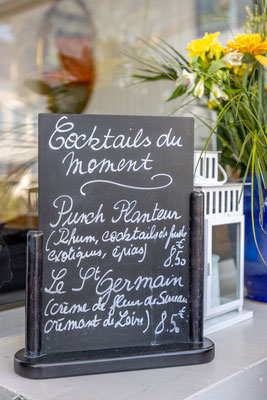 Cocktails du
Moment
Punch Planteur
(Rhum, cocktails de fruits
exotiques, épices) 8,50 €
Le St Germain
(crème de fleur de Sureau
crémant de Loire) 8,50 €